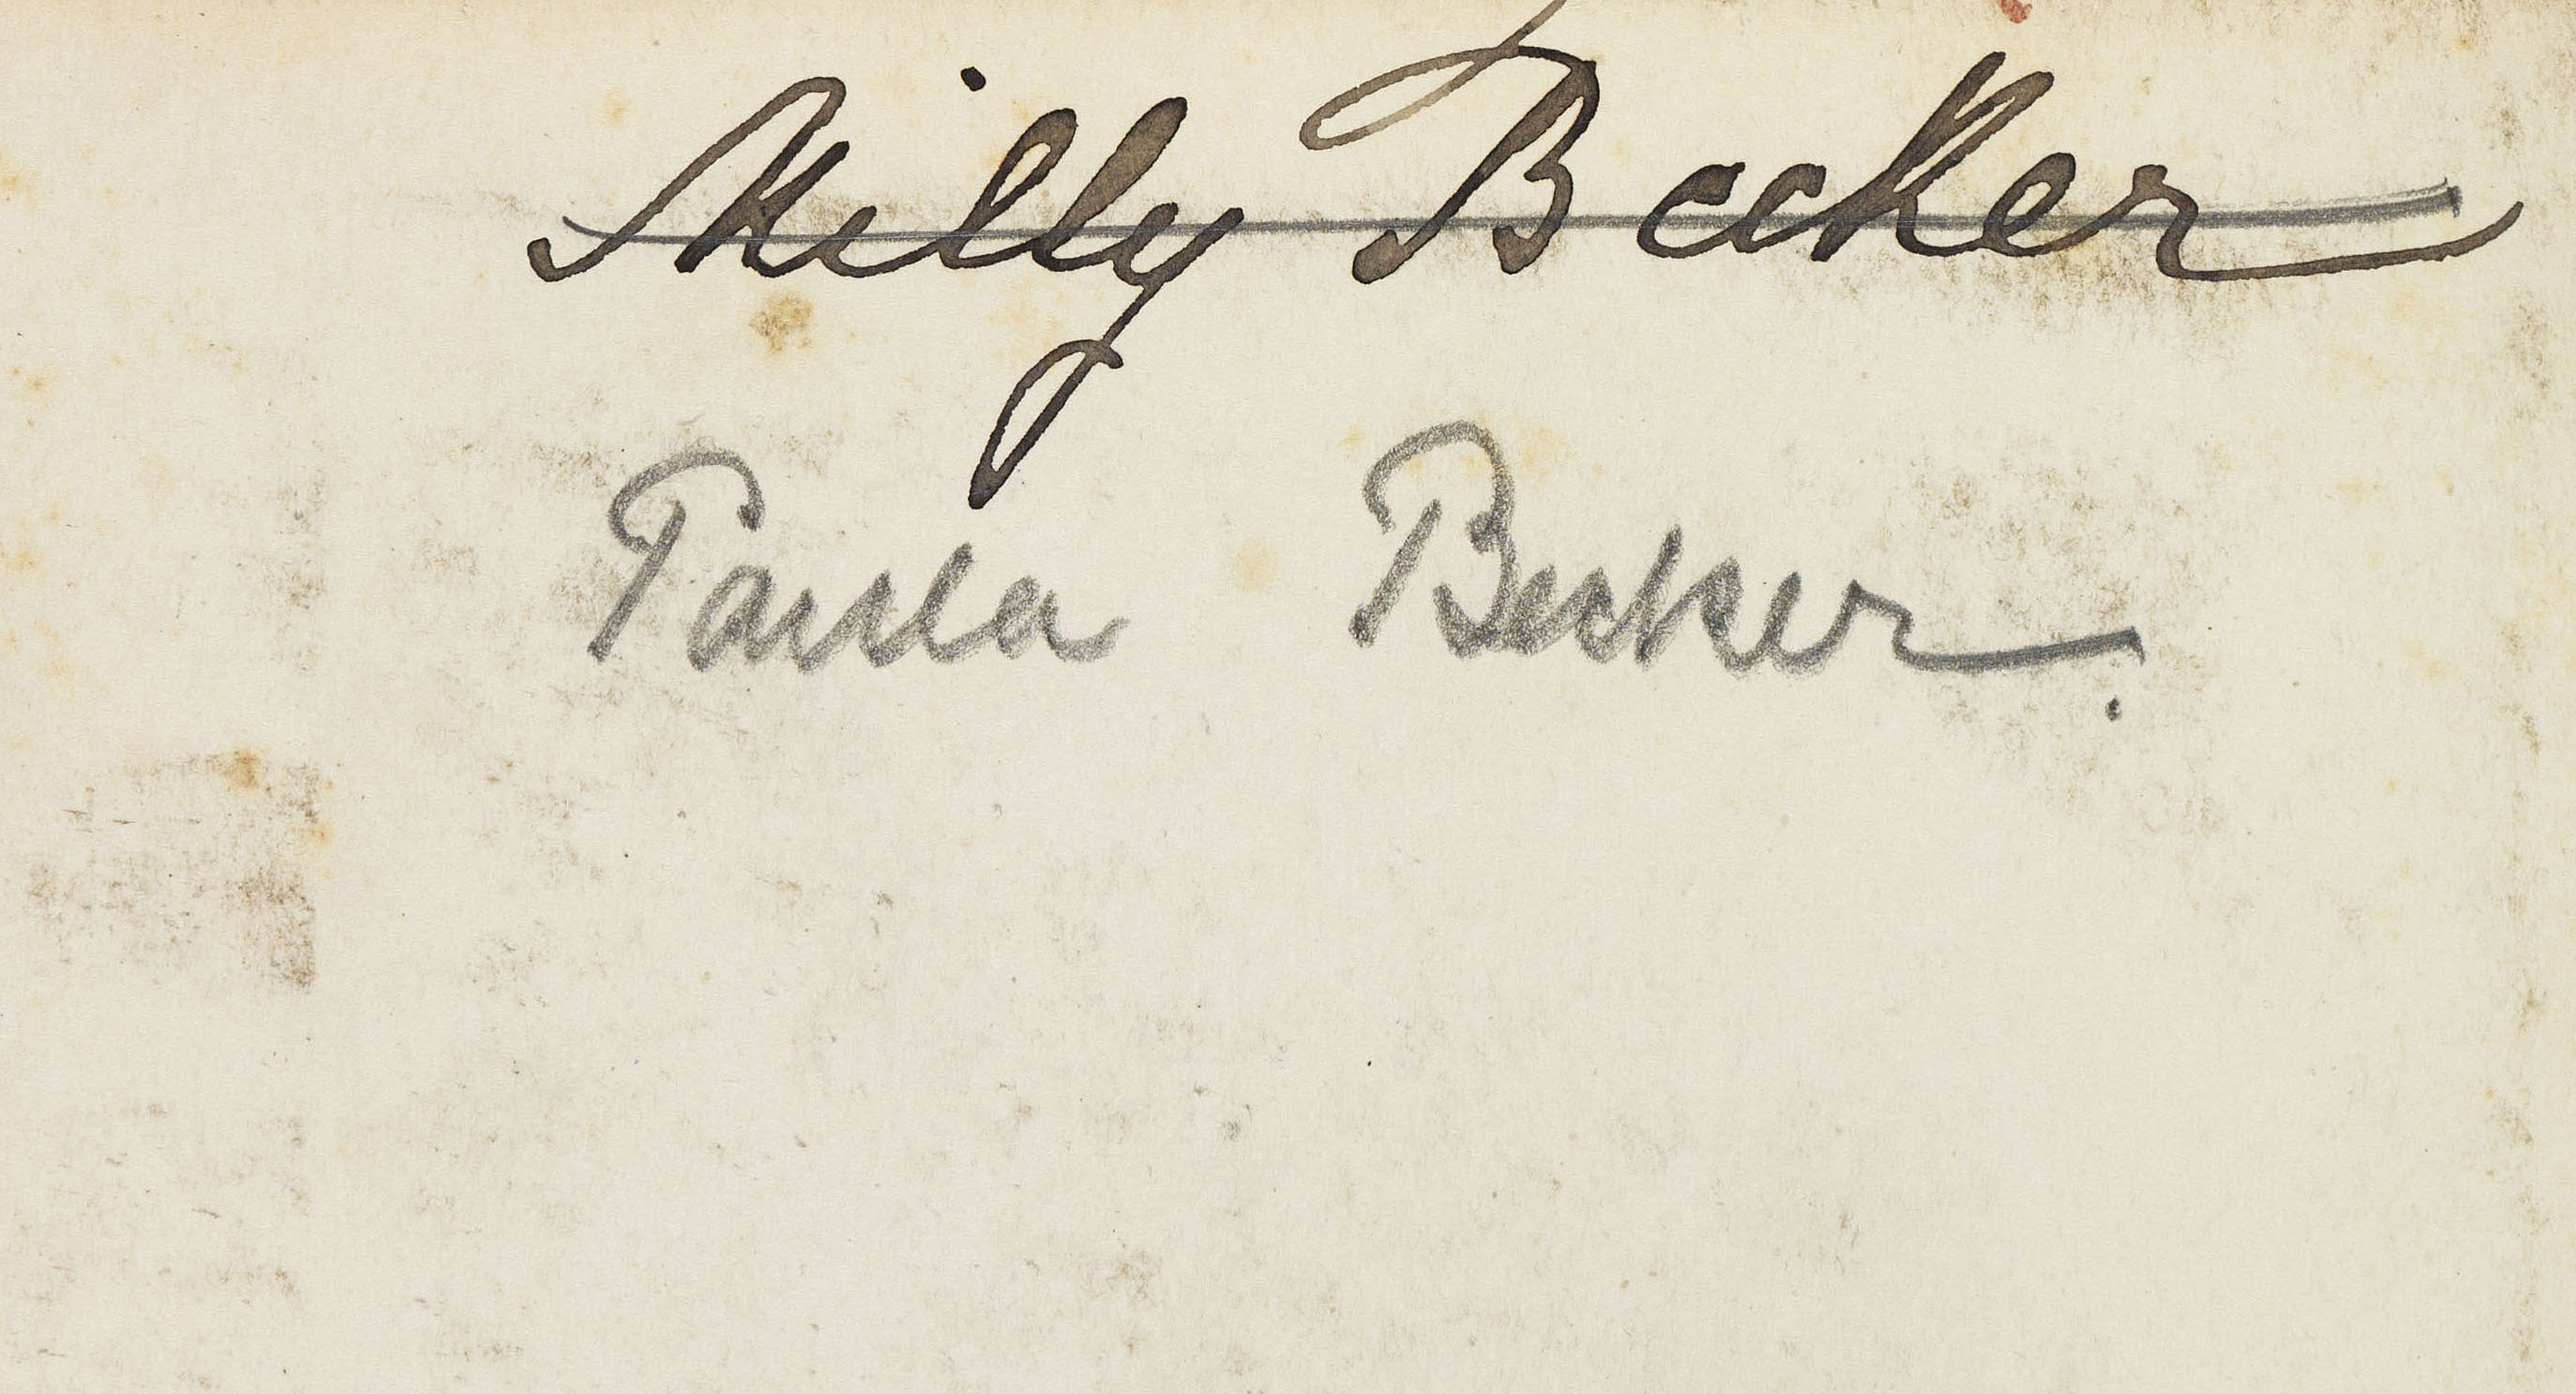 Milly Becker
Paula Becker.